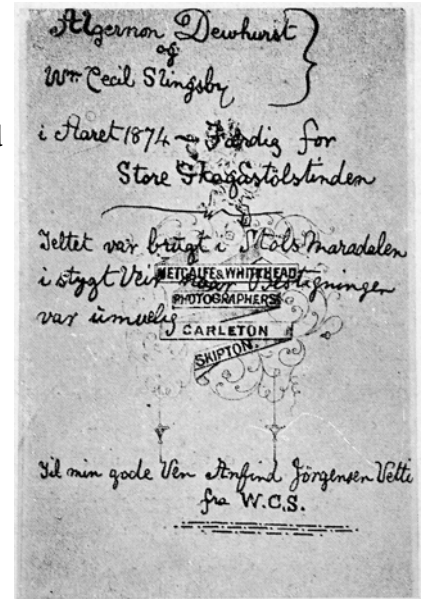 Algernon Dewhurst
og
Wm Cecil Slingsby
i Aaret 1874 — Færdig for
Store Skagastölstinden
Teltet var brugt i Stols Maradalen
i stygt Veir naar Bestigningen
var umuelig
METCALFE & WHITEHEAD
PHOTOGRAPHERS
CARLETON
SKIPTON.
Til min gode Ven Anfind Jörgensen Vetti
fra W.C.S.